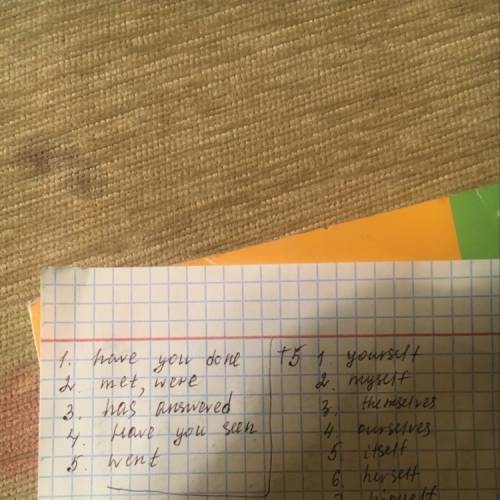 1. have you done
2. met, were
3. has answered
4. Have you seen
5. went
+5 1 yourself
2. myself
3. themselves
4 ourselves
5. itself
6. herself